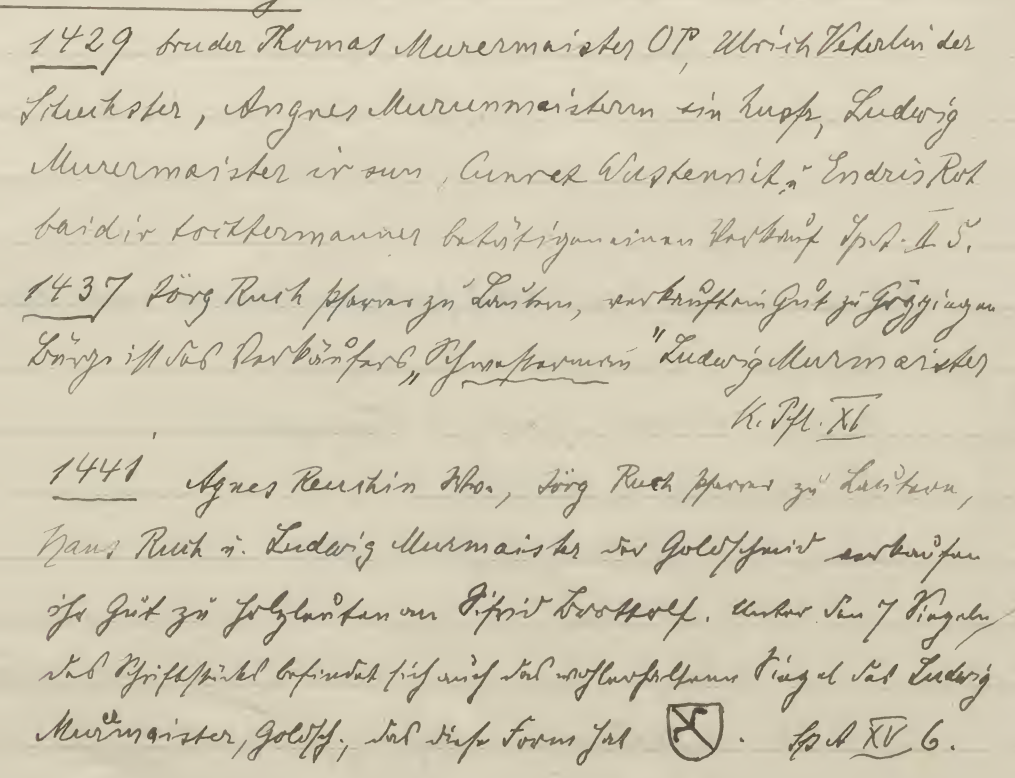 1429 bruder Thomas Murermaister OP, Ulrich Veterlin der
Schuhster, Angnes Murermaisterin sin husfr, Ludwig
Murermaister ir sun, Cunrat Wustenrit u Endris Rot
baid ir tochtermanner betätigen einen Verkauf Sp. A. II 5.
1437 Jörg Ruch Pfarrer zu Lautern, verkauft ein Gut zu Göggingen
Bürge ist des Verkäufers „Schwestermann" Ludwig Murmaister
K. Pfl. XI
1441 Agnes Reuchin Wwe., Jörg Ruch Pfarrer zu Lautern,
Hans Ruch u. Ludwig Murmaister der Goldschmid verkaufen
ihr Gut zu Holzleuten an Sifrid Brottolf. Unter den 7 Siegeln
des Schriftstücks befindet sich auch das wohlerhaltene Siegel des Ludwig
Murermaister, Goldsch., das diese Form hat . Sp A XV 6.